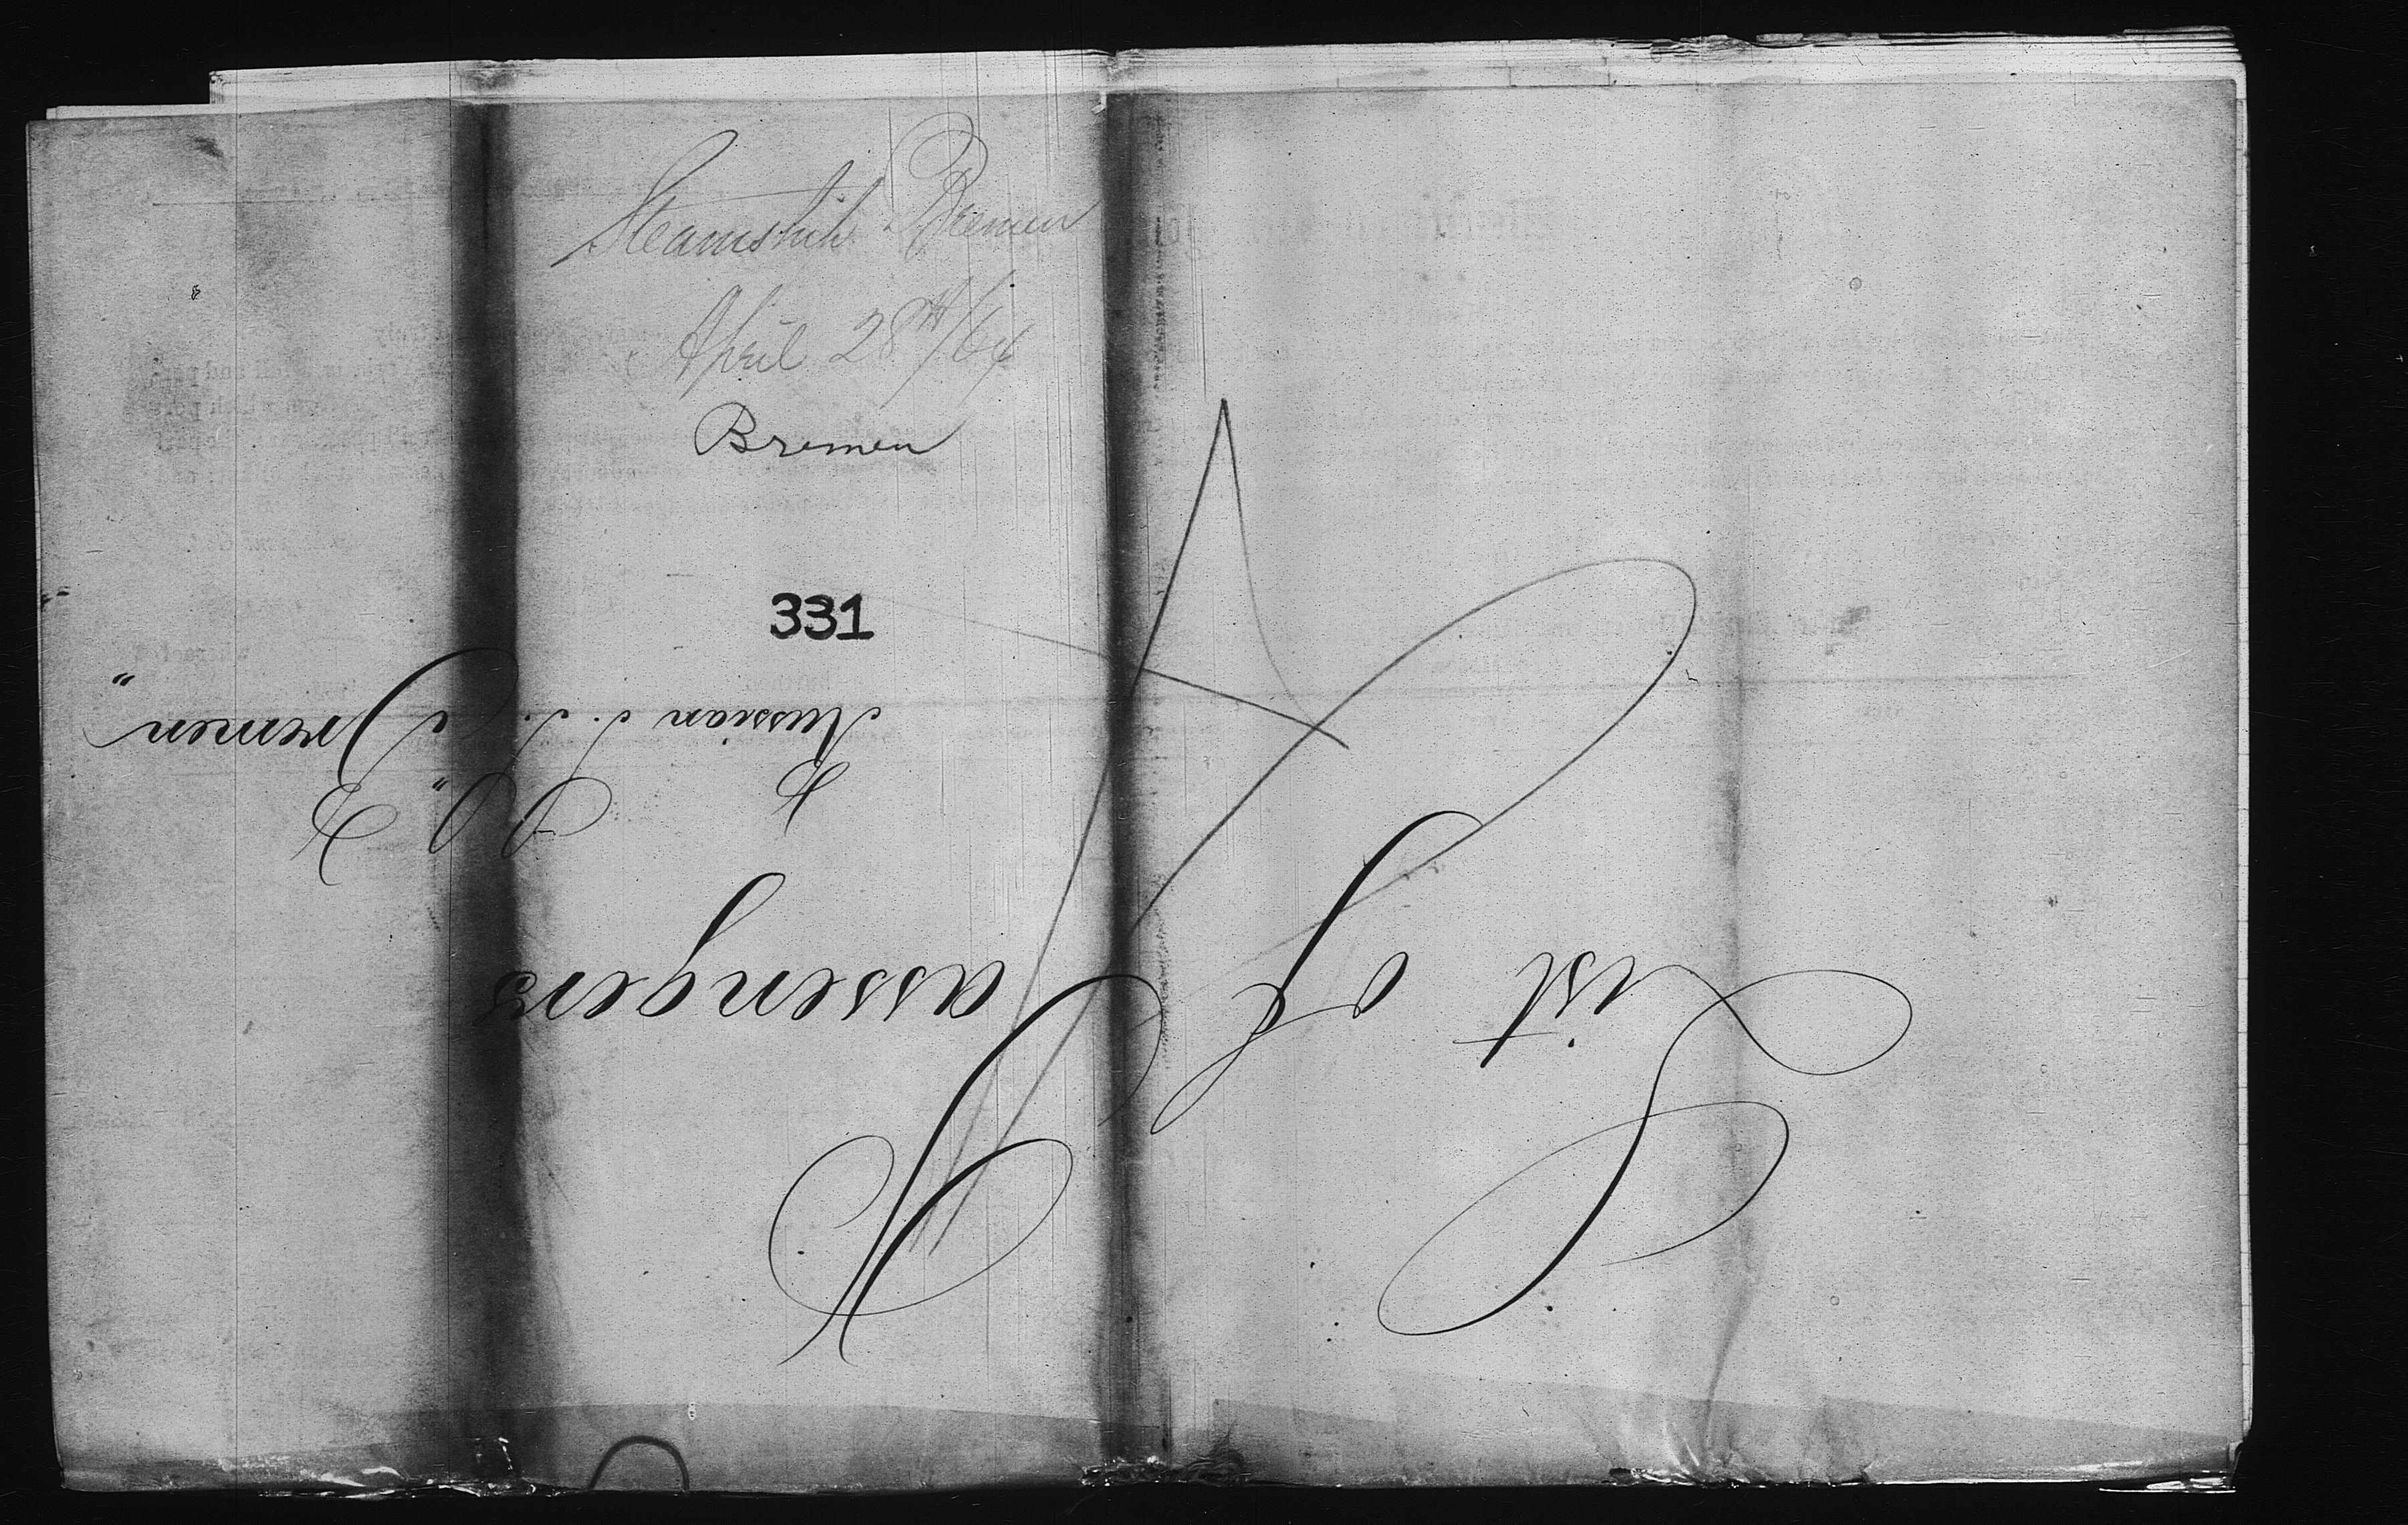 Steamship Bremen
April 28th/64
Bremen
331
List of
Passengers
p
Russian S. S. "Bremen"